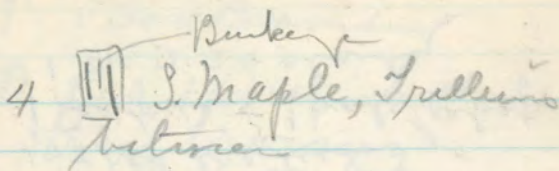 Buckeye
4 S. Maple, Trillium
between